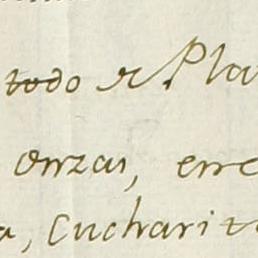 todo de Pla
onzas, erre
a, Cucharit